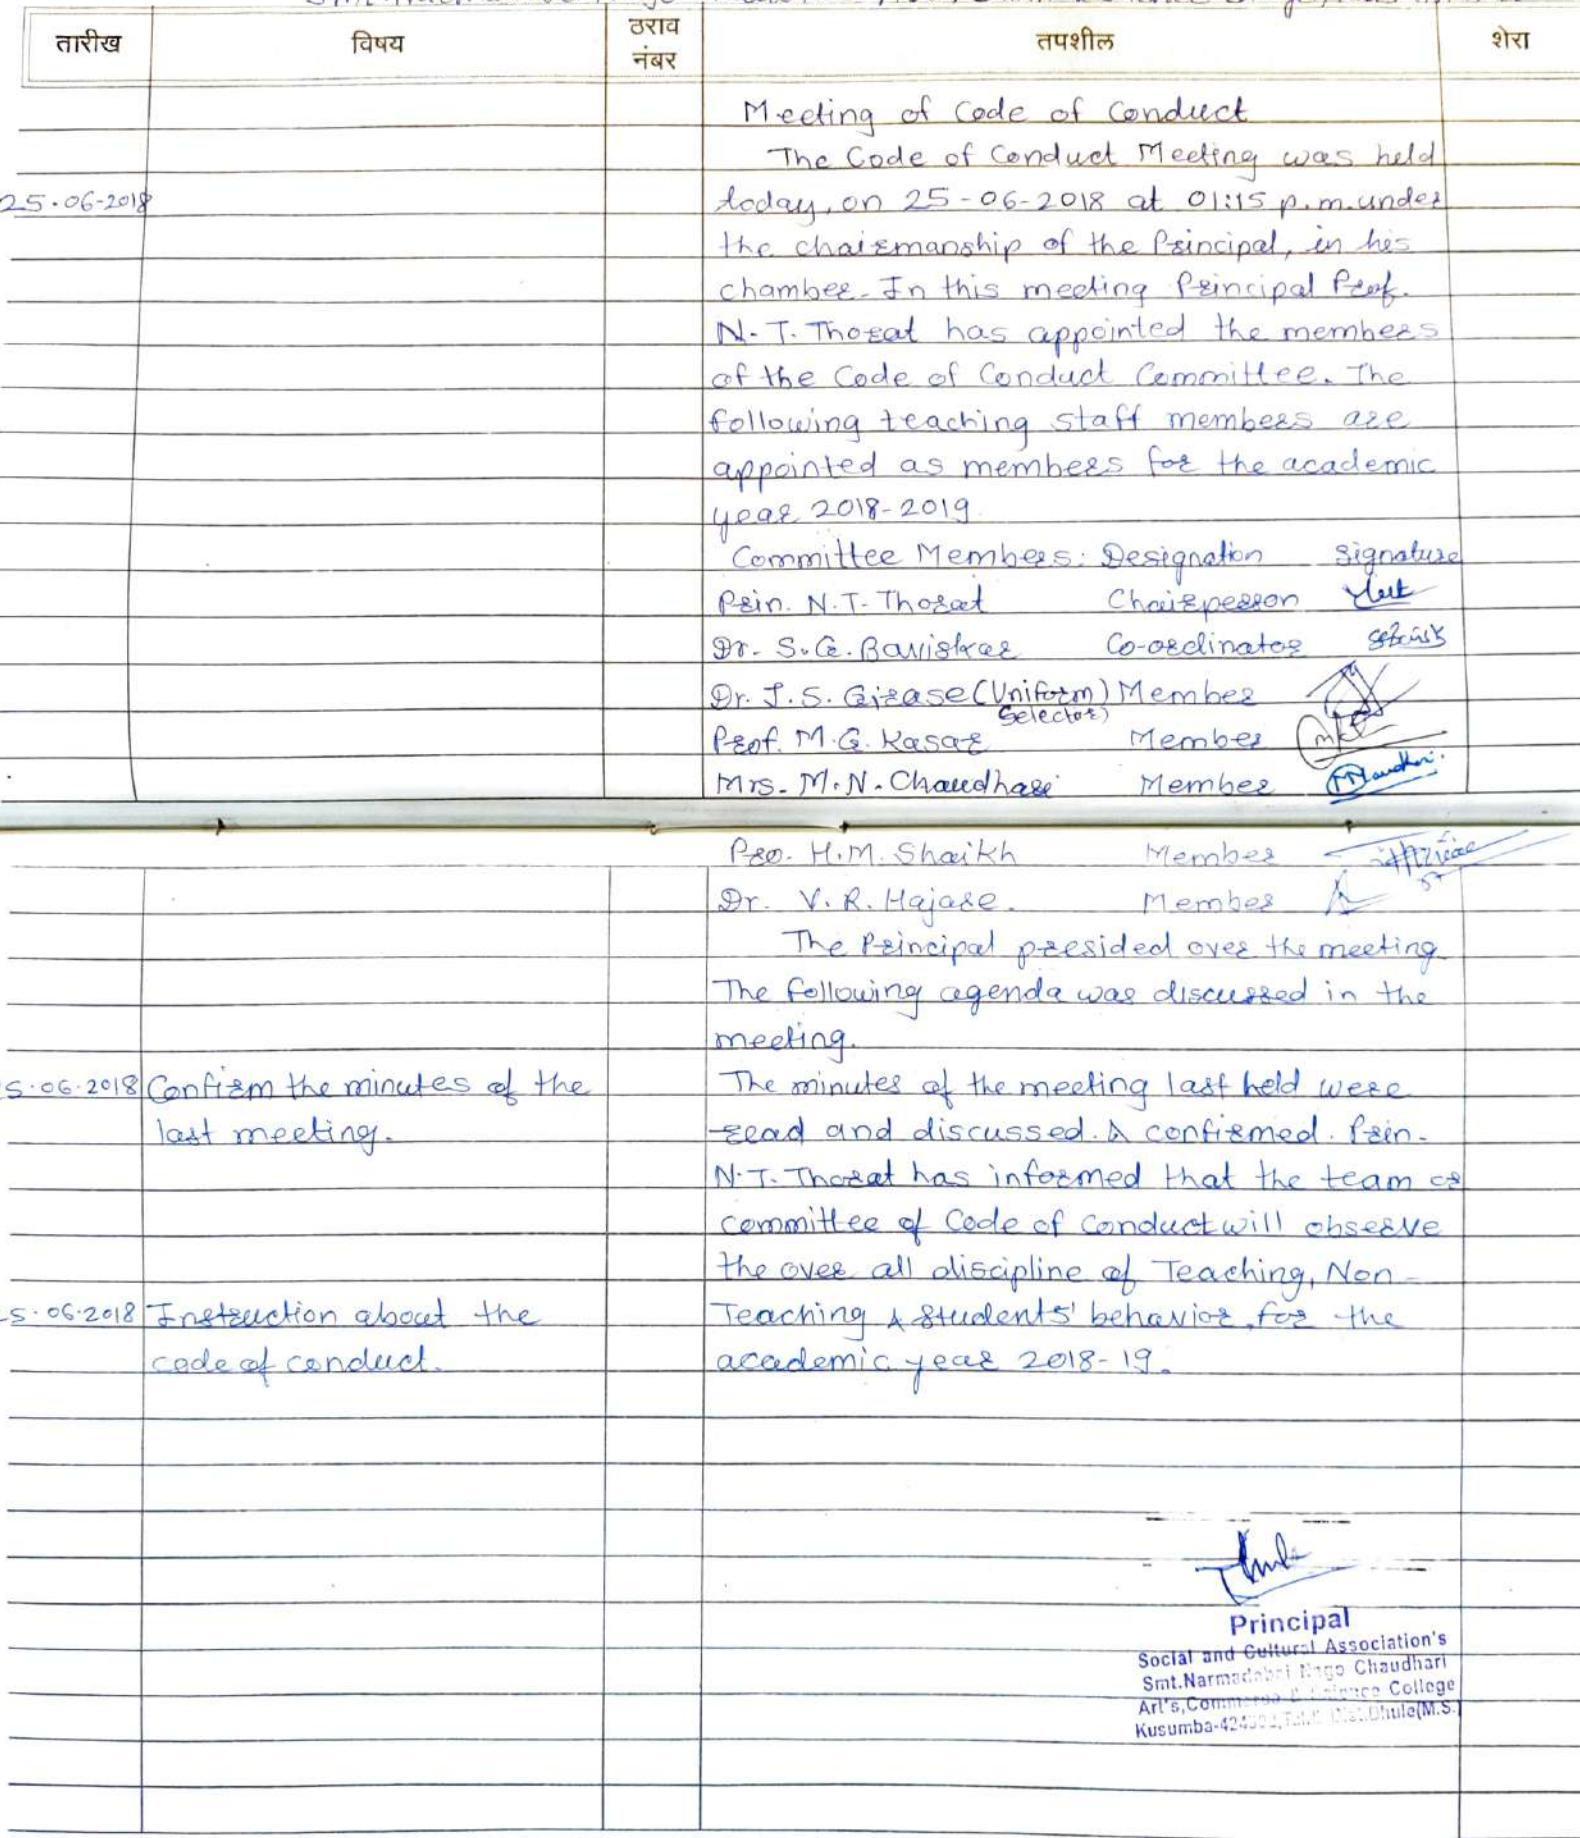 तारीख विषय ठराव नंबर तपशील शेरा
Meeting of Code of Conduct
The Code of Conduct Meeting was held
25.06-2018 today, on 25-06-2018 at 01:15 p.m. under
the chairmanship of the Principal, in his
chamber. In this meeting Principal Prof.
N.T. Thorat has appointed the members
of the Code of Conduct Committee. The
following teaching staff members are
appointed as members for the academic
year 2018-2019
Committee Members: Designation Signature
Prin. N.T. Thorat Chairperson
Dr. S.G. Baviskar Co-ordinator
Dr. J.S. Girase (Uniform Member
Selector)
Prof. M.G. Kasar Member
Mrs. M.N. Chaudhari Member
Pro. H.M. Shaikh Member
Dr. V.R. Hajare. Member
The Principal presided over the meeting
The following agenda was discussed in the
meeting.
5.06.2018 Confirm the minutes of the The minutes of the meeting last held were
last meeting. read and discussed. & confirmed. Prin.
N.T. Thorat has informed that the team of
committee of Code of conduct will observe
the over all discipline of Teaching, Non-
5.06.2018 Instruction about the Teaching & students' behavior, for the
code of conduct. academic year 2018-19.
Principal
Social and Cultural Association's
Smt. Chaudhari
Art's, College
Kusumba- Dhule(M.S.)